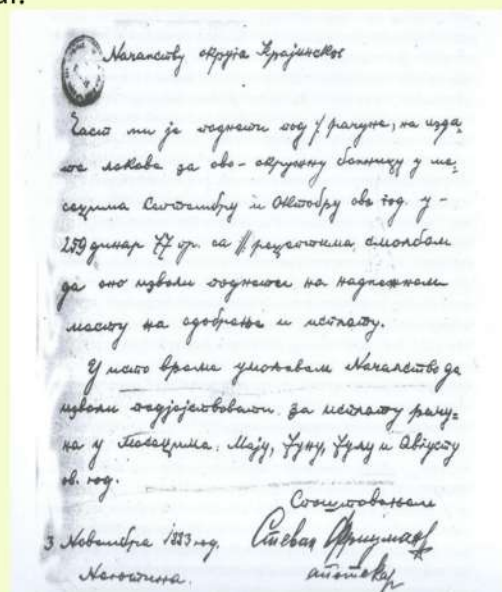 Началству округа Крајинског
Част ми је поднети под / рачуне, на изда-
те лекове за ово-окружну болницу у ме-
сецима Септембру и Октобру ове год. у -
259 динар 77 пр. са // рецептима, с молбом
да оно изволи поднети на надлежном
месту на одобрење и исплату.
У исто време умољавам Началство да
изволи подјејствовати за исплату рачу-
на у месецима: Мају, Јуну, Јулу и Августу
ов. год.
С поштовањем
3 Новембра 1883 год. Стеван
Неготина. апотекар